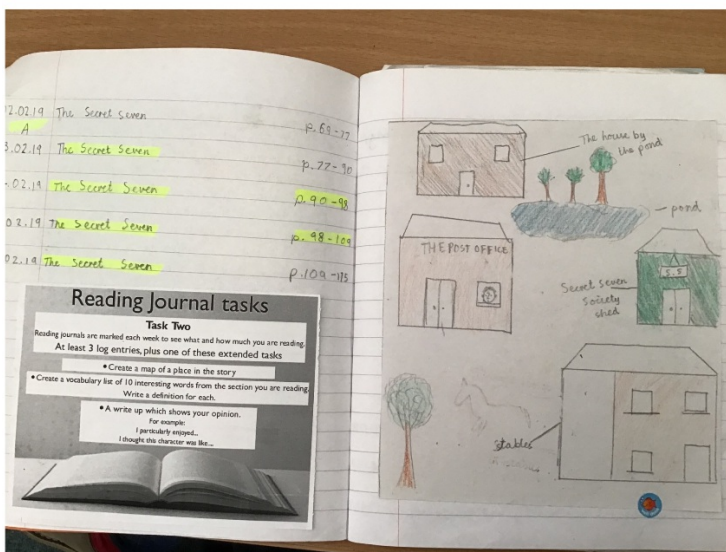 2.02.19 The Secret Seven p.69-77
A
3.02.19 The Secret Seven p.77-90
.02.19 The Secret Seven p.90-98
02.19 The Secret Seven p.98-109
02.19 The Secret Seven p.109-115
Reading Journal tasks
Task Two
Reading journals are marked each week to see what and how much you are reading.
At least 3 log entries, plus one of these extended tasks
• Create a map of a place in the story
• Create a vocabulary list of 10 interesting words from the section you are reading.
Write a definition for each.
• A write up which shows your opinion.
For example:
I particularly enjoyed...
I thought this character was like...
The house by
the pond
pond
THE POST OFFICE
S.S
Secret Seven
Society
shed
stables